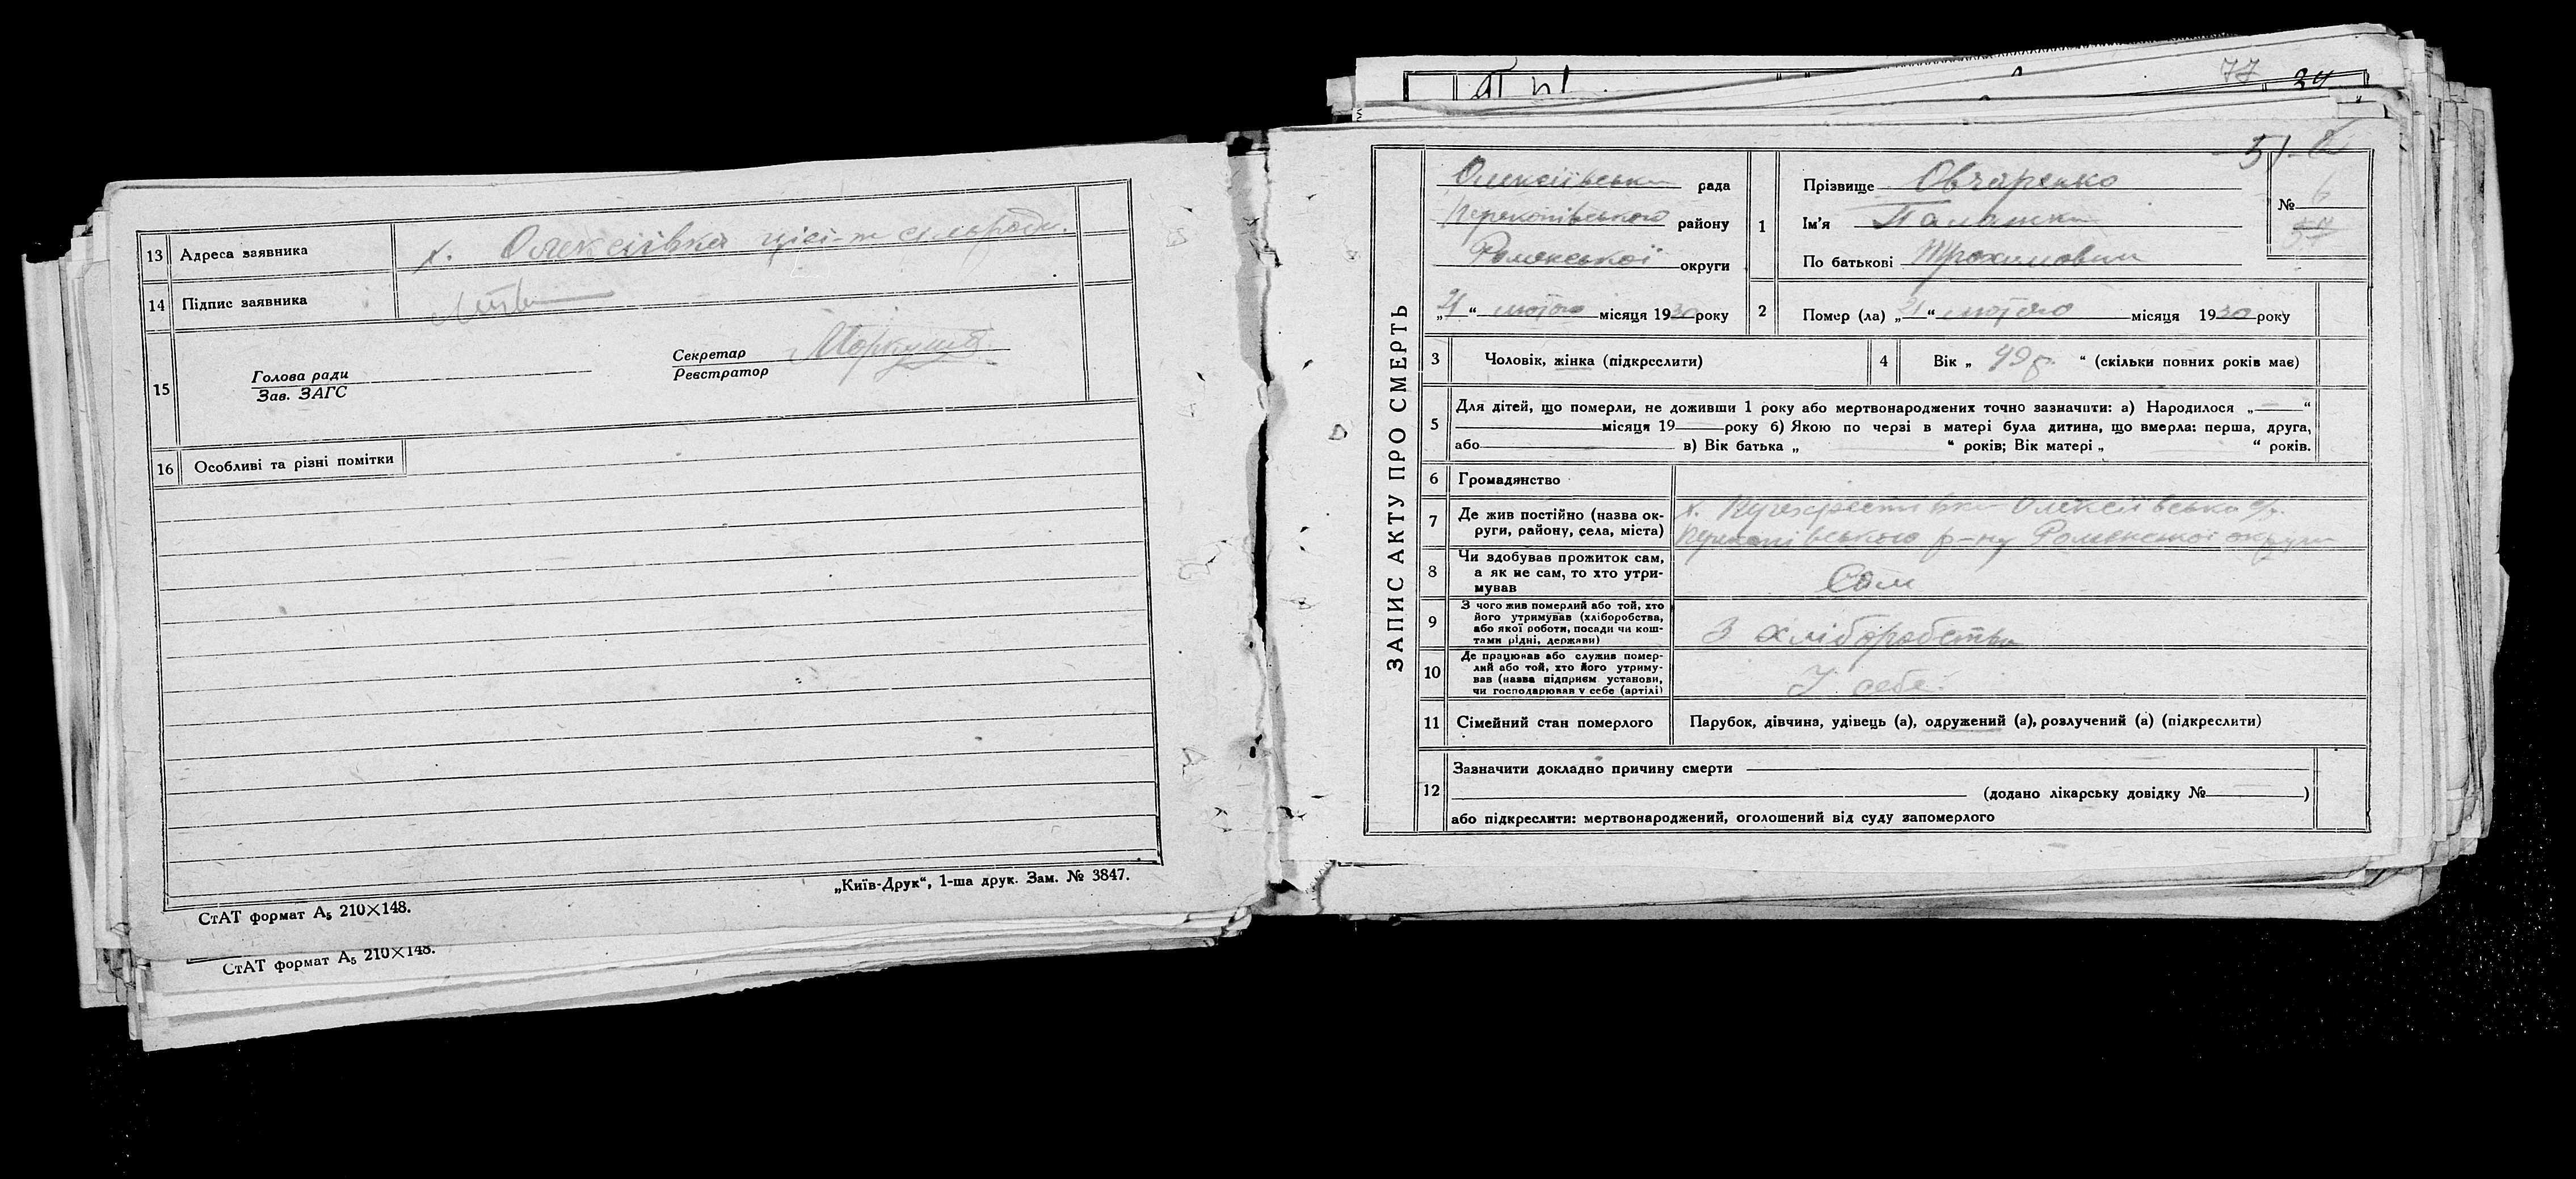 13 Адреса заявника х. Олексіївка цієї-ж сільради.
14 Підпис заявника
15 Голова ради
Зав. ЗАГС
Секретар
Реєстратор
16 Особливі та різні помітки
„Київ-Друк“, 1-ша друк. Зам. № 3847.
СтАТ формат А₅ 210×148.
СтАТ формат А₅ 210×148.
77 34
51
ЗАПИС АКТУ ПРО СМЕРТЬ
Олексіївська рада
Перекопівського району
Роменської округи
„21“ лютого місяця 1930 року
1 Прізвище Овчаренко
Ім'я Палажка
По батькові Трохимовна
№ 6
2 Помер (ла) „21“ лютого місяця 1930 року
3 Чоловік, жінка (підкреслити)
4 Вік „ 49 р. “ (скільки повних років має)
5 Для дітей, що померли, не доживши 1 року або мертвонароджених точно зазначити: а) Народилося „ “
місяця 19 року б) Якою по черзі в матері була дитина, що вмерла: перша, друга,
або в) Вік батька „ “ років; Вік матері „ “ років.
6 Громадянство
7 Де жив постійно (назва округи, району, села, міста)
х. Олексіївська с/р.
Перекопівського р-ну Роменської округи
8 Чи здобував прожиток сам,
а як не сам, то хто утри-
мував
Сам
9 З чого жив померлий або той, хто
його утримував (хліборобства,
або якої роботи, посади чи кош-
тами рідні, держави)
З хліборобства
10 Де працював або служив помер-
лий або той, хто його утриму-
вав (назва підприєм установи,
чи господарював у себе (артілі)
У себе.
11 Сімейний стан померлого Парубок, дівчина, удівець (а), одружений (а), розлучений (а) (підкреслити)
12 Зазначити докладно причину смерти
(додано лікарську довідку № )
або підкреслити: мертвонароджений, оголошений від суду запомерлого